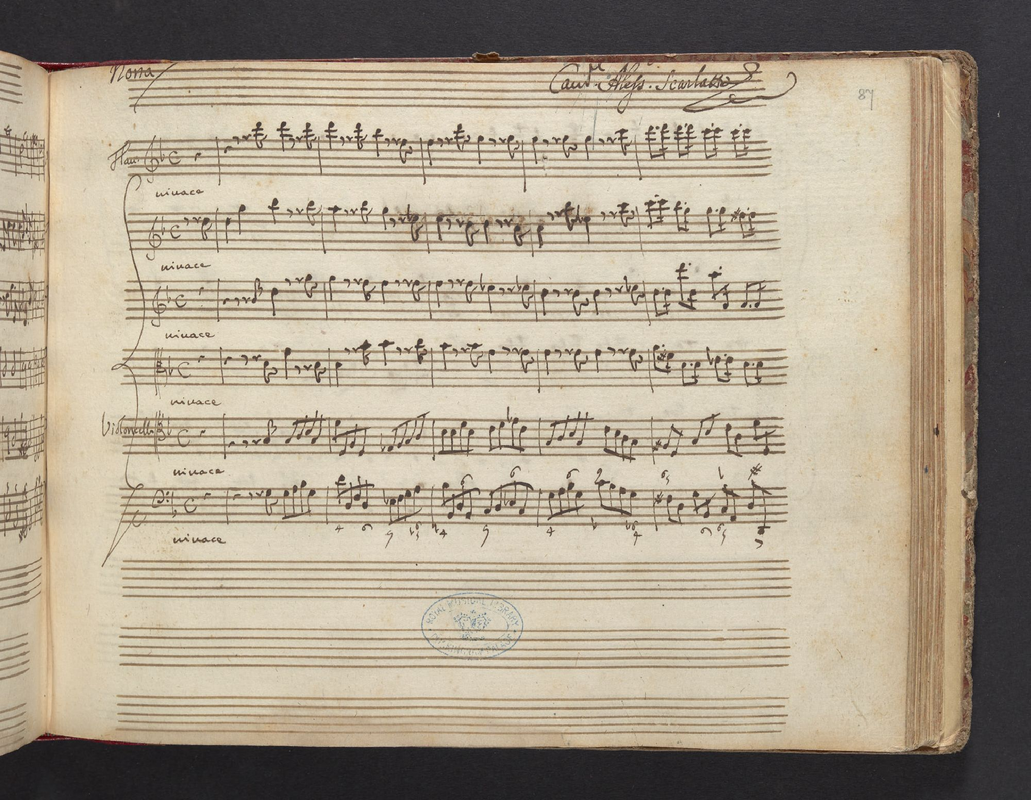 Nona
Cav.re Aless. Scarlatti
87
Flau
vivace
vivace
vivace
vivace
Violoncello
vivace
vivace
ROYAL MUSICAL LIBRARY
BUCKINGHAM PALACE